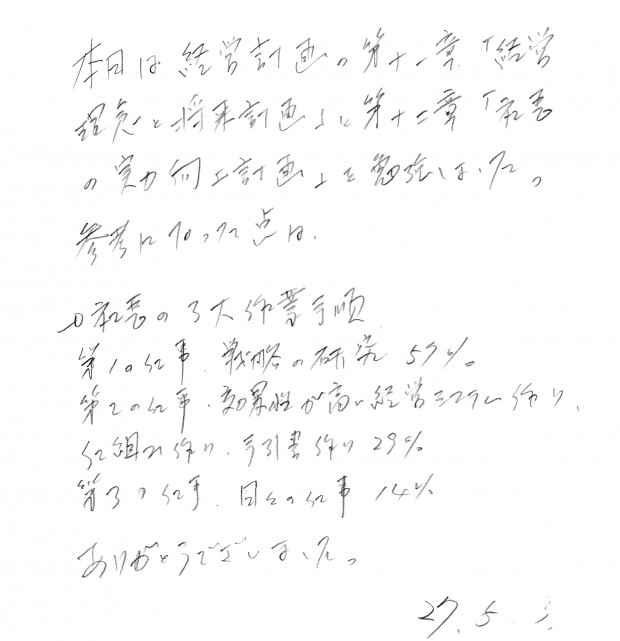 本日は経営計画の第十一章「経営
理念と将来計画」と第十二章「社長
の実力向上計画」を勉強しました。
参考になった点は、
1)社長の3大作業手順
第1の仕事、戦略の研究 57%。
第2の仕事、効果性が高い経営システム作り、
仕組み作り、手引書作り 29%
第3の仕事、日々の仕事 14%
ありがとうございました。
27. 5.